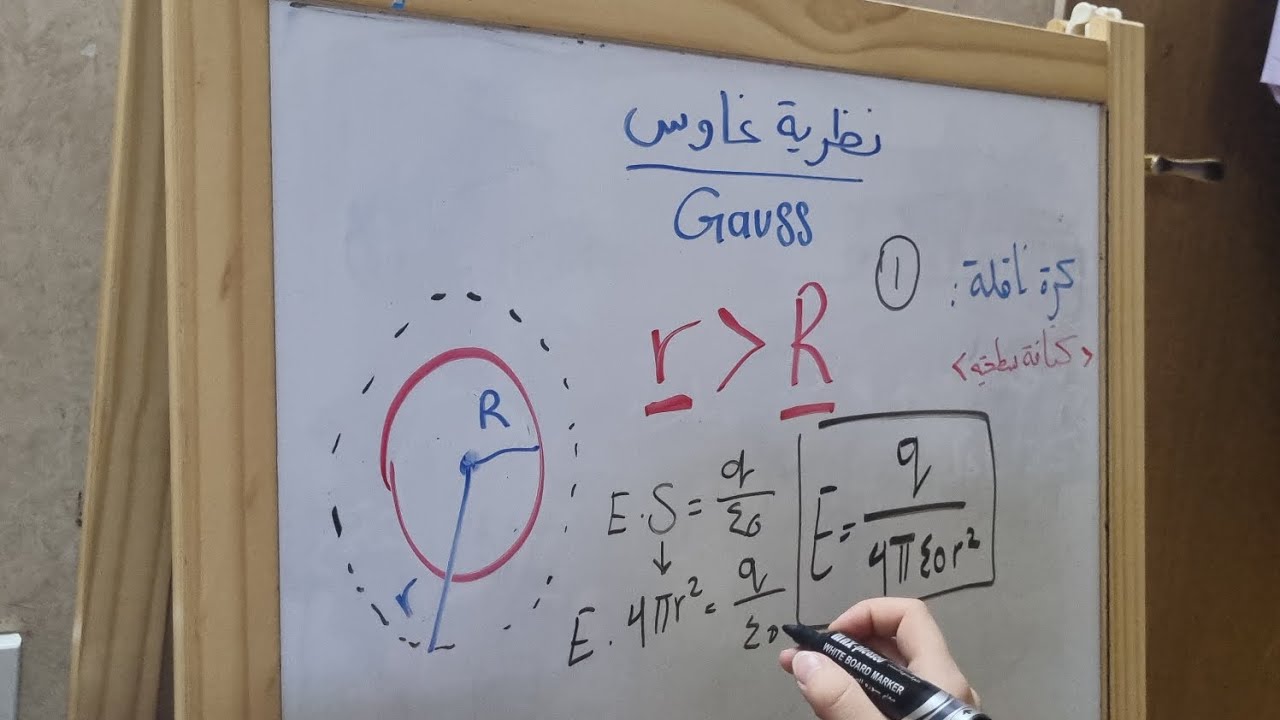 نظرية غاوس
Gauss
① كرة ناقلة :
r > R
R
r
E . S = q/ε₀
↓
E . 4πr² = q/ε₀
E = q/4πε₀r²
WHITE BOARD MARKER